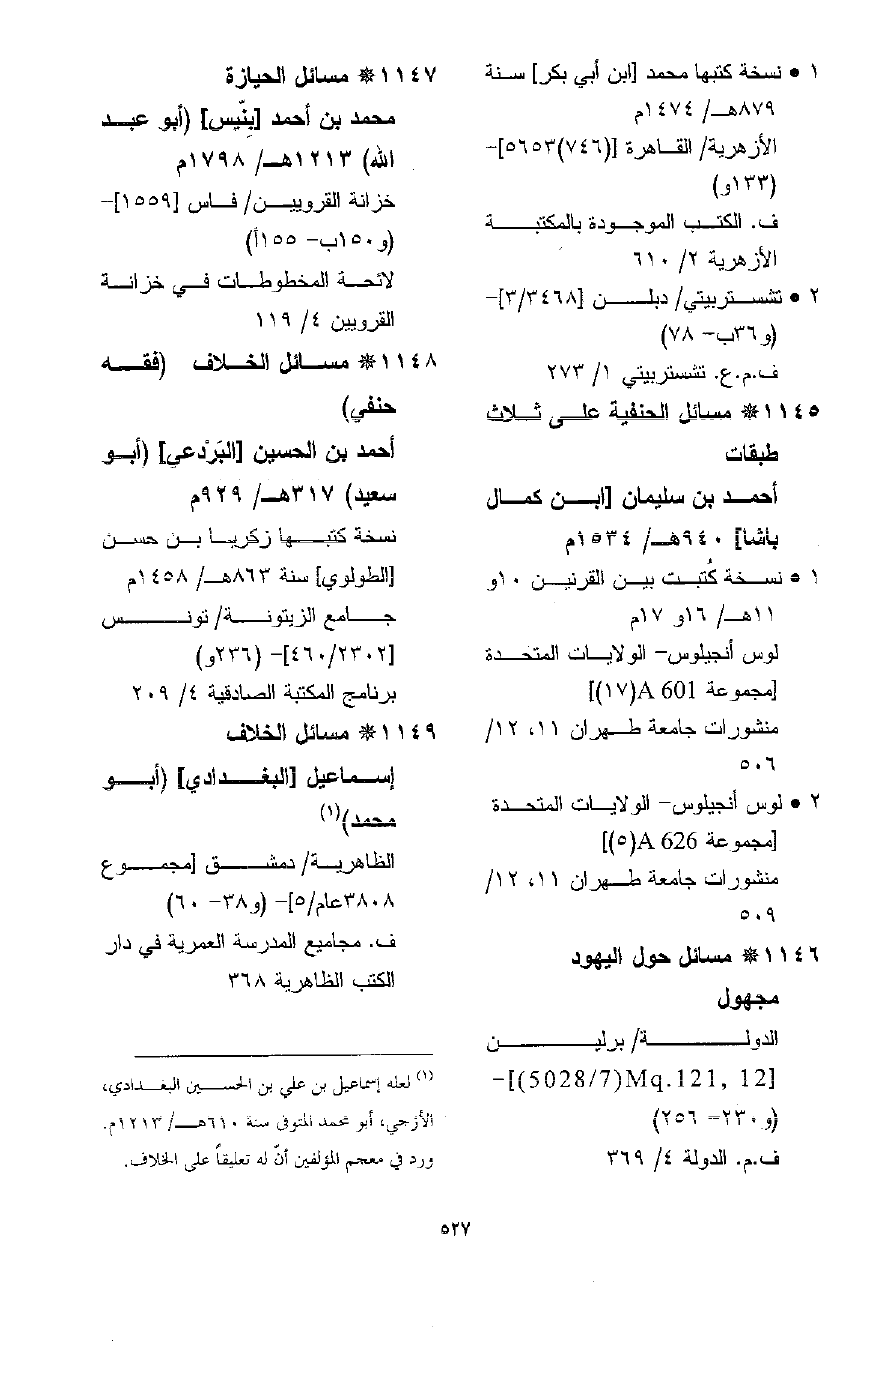 ١ • نسخة كتبها محمد [ابن أبي بكر] سنة
٨٧٩هـ/ ١٤٧٤م
الأزهرية/ القاهرة [(٧٤٦)٥٦٥٣]-
(١٣٣و)
ف. الكتب الموجودة بالمكتبة
الأزهرية ٢/ ٦١٠
٢ • تشستربيتي/ دبلن [٣/٣٤٦٨]-
(و٣٦ب- ٧٨)
ف.م.ع. تشستربيتي ١/ ٢٧٣
١١٤٥* مسائل الحنفية على ثلاث
طبقات
أحمد بن سليمان [ابن كمال
باشا] ٩٤٠هـ/ ١٥٣٤م
١ • نسخة كُتبت بين القرنين ١٠و
١١هـ/ ١٦و ١٧م
لوس أنجيلوس- الولايات المتحدة
[مجموعة A 601(١٧)]
منشورات جامعة طهران ١١، ١٢/
٥٠٦
٢ • لوس أنجيلوس- الولايات المتحدة
[مجموعة A 626(٥)]
منشورات جامعة طهران ١١، ١٢/
٥٠٩
١١٤٦* مسائل حول اليهود
مجهول
الدولة/ برلين
[5028/7)Mq.121, 12)]-
(و٢٣٠- ٢٥٦)
ف.م. الدولة ٤/ ٣٦٩
١١٤٧* مسائل الحيازة
محمد بن أحمد [بنّيس] (أبو عبد
الله) ١٢١٣هـ/ ١٧٩٨م
خزانة القرويين/ فاس [١٥٥٩]-
(و١٥٠ب- ١٥٥أ)
لائحة المخطوطات في خزانة
القرويين ٤/ ١١٩
١١٤٨* مسائل الخلاف (فقه
حنفي)
أحمد بن الحسين [البَرْدعي] (أبو
سعيد) ٣١٧هـ/ ٩٢٩م
نسخة كتبها زكريا بن حسن
[الطولوي] سنة ٨٦٣هـ/ ١٤٥٨م
جامع الزيتونة/ تونس
[٤٦٠/٢٣٠٢]- (٢٣٦و)
برنامج المكتبة الصادقية ٤/ ٢٠٩
١١٤٩* مسائل الخلاف
إسماعيل [البغدادي] (أبو
محمد)(١)
الظاهرية/ دمشق [مجموع
٣٨٠٨عام/٥]- (و٣٨- ٦٠)
ف. مجاميع المدرسة العمرية في دار
الكتب الظاهرية ٣٦٨
(١) لعله إسماعيل بن علي بن الحسين البغدادي،
الأزجي، أبو محمد المتوفى سنة ٦١٠هـ/ ١٢١٣م.
ورد في معجم المؤلفين أنّ له تعليقاً على الخلاف.
٥٢٧